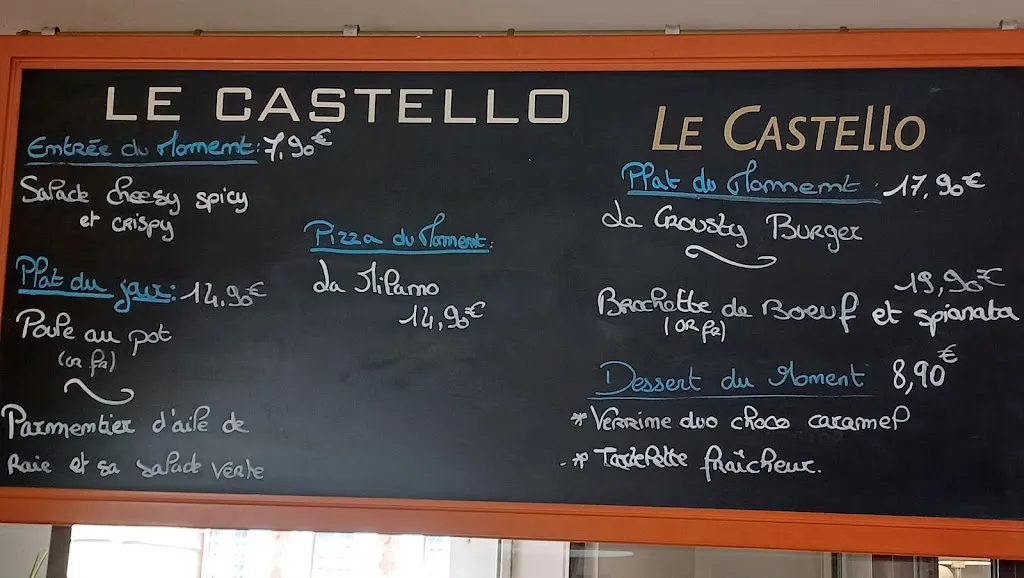 LE CASTELLO
Entrée du Moment: 7,90€
Salade cheesy spicy
et crispy
Plat du jour: 14,90€
Poule au pot
(OR fR)
Parmentier d'aile de
Raie et sa salade verte
Pizza du Moment:
La Milano
14,90€
LE CASTELLO
Plat du Moment: 17,90€
Le Crousty Burger
19,90€
Brochette de Boeuf et spianata
(OR fR)
Dessert du Moment 8,90€
* Verrine duo choco caramel
* Tartelette fraîcheur.